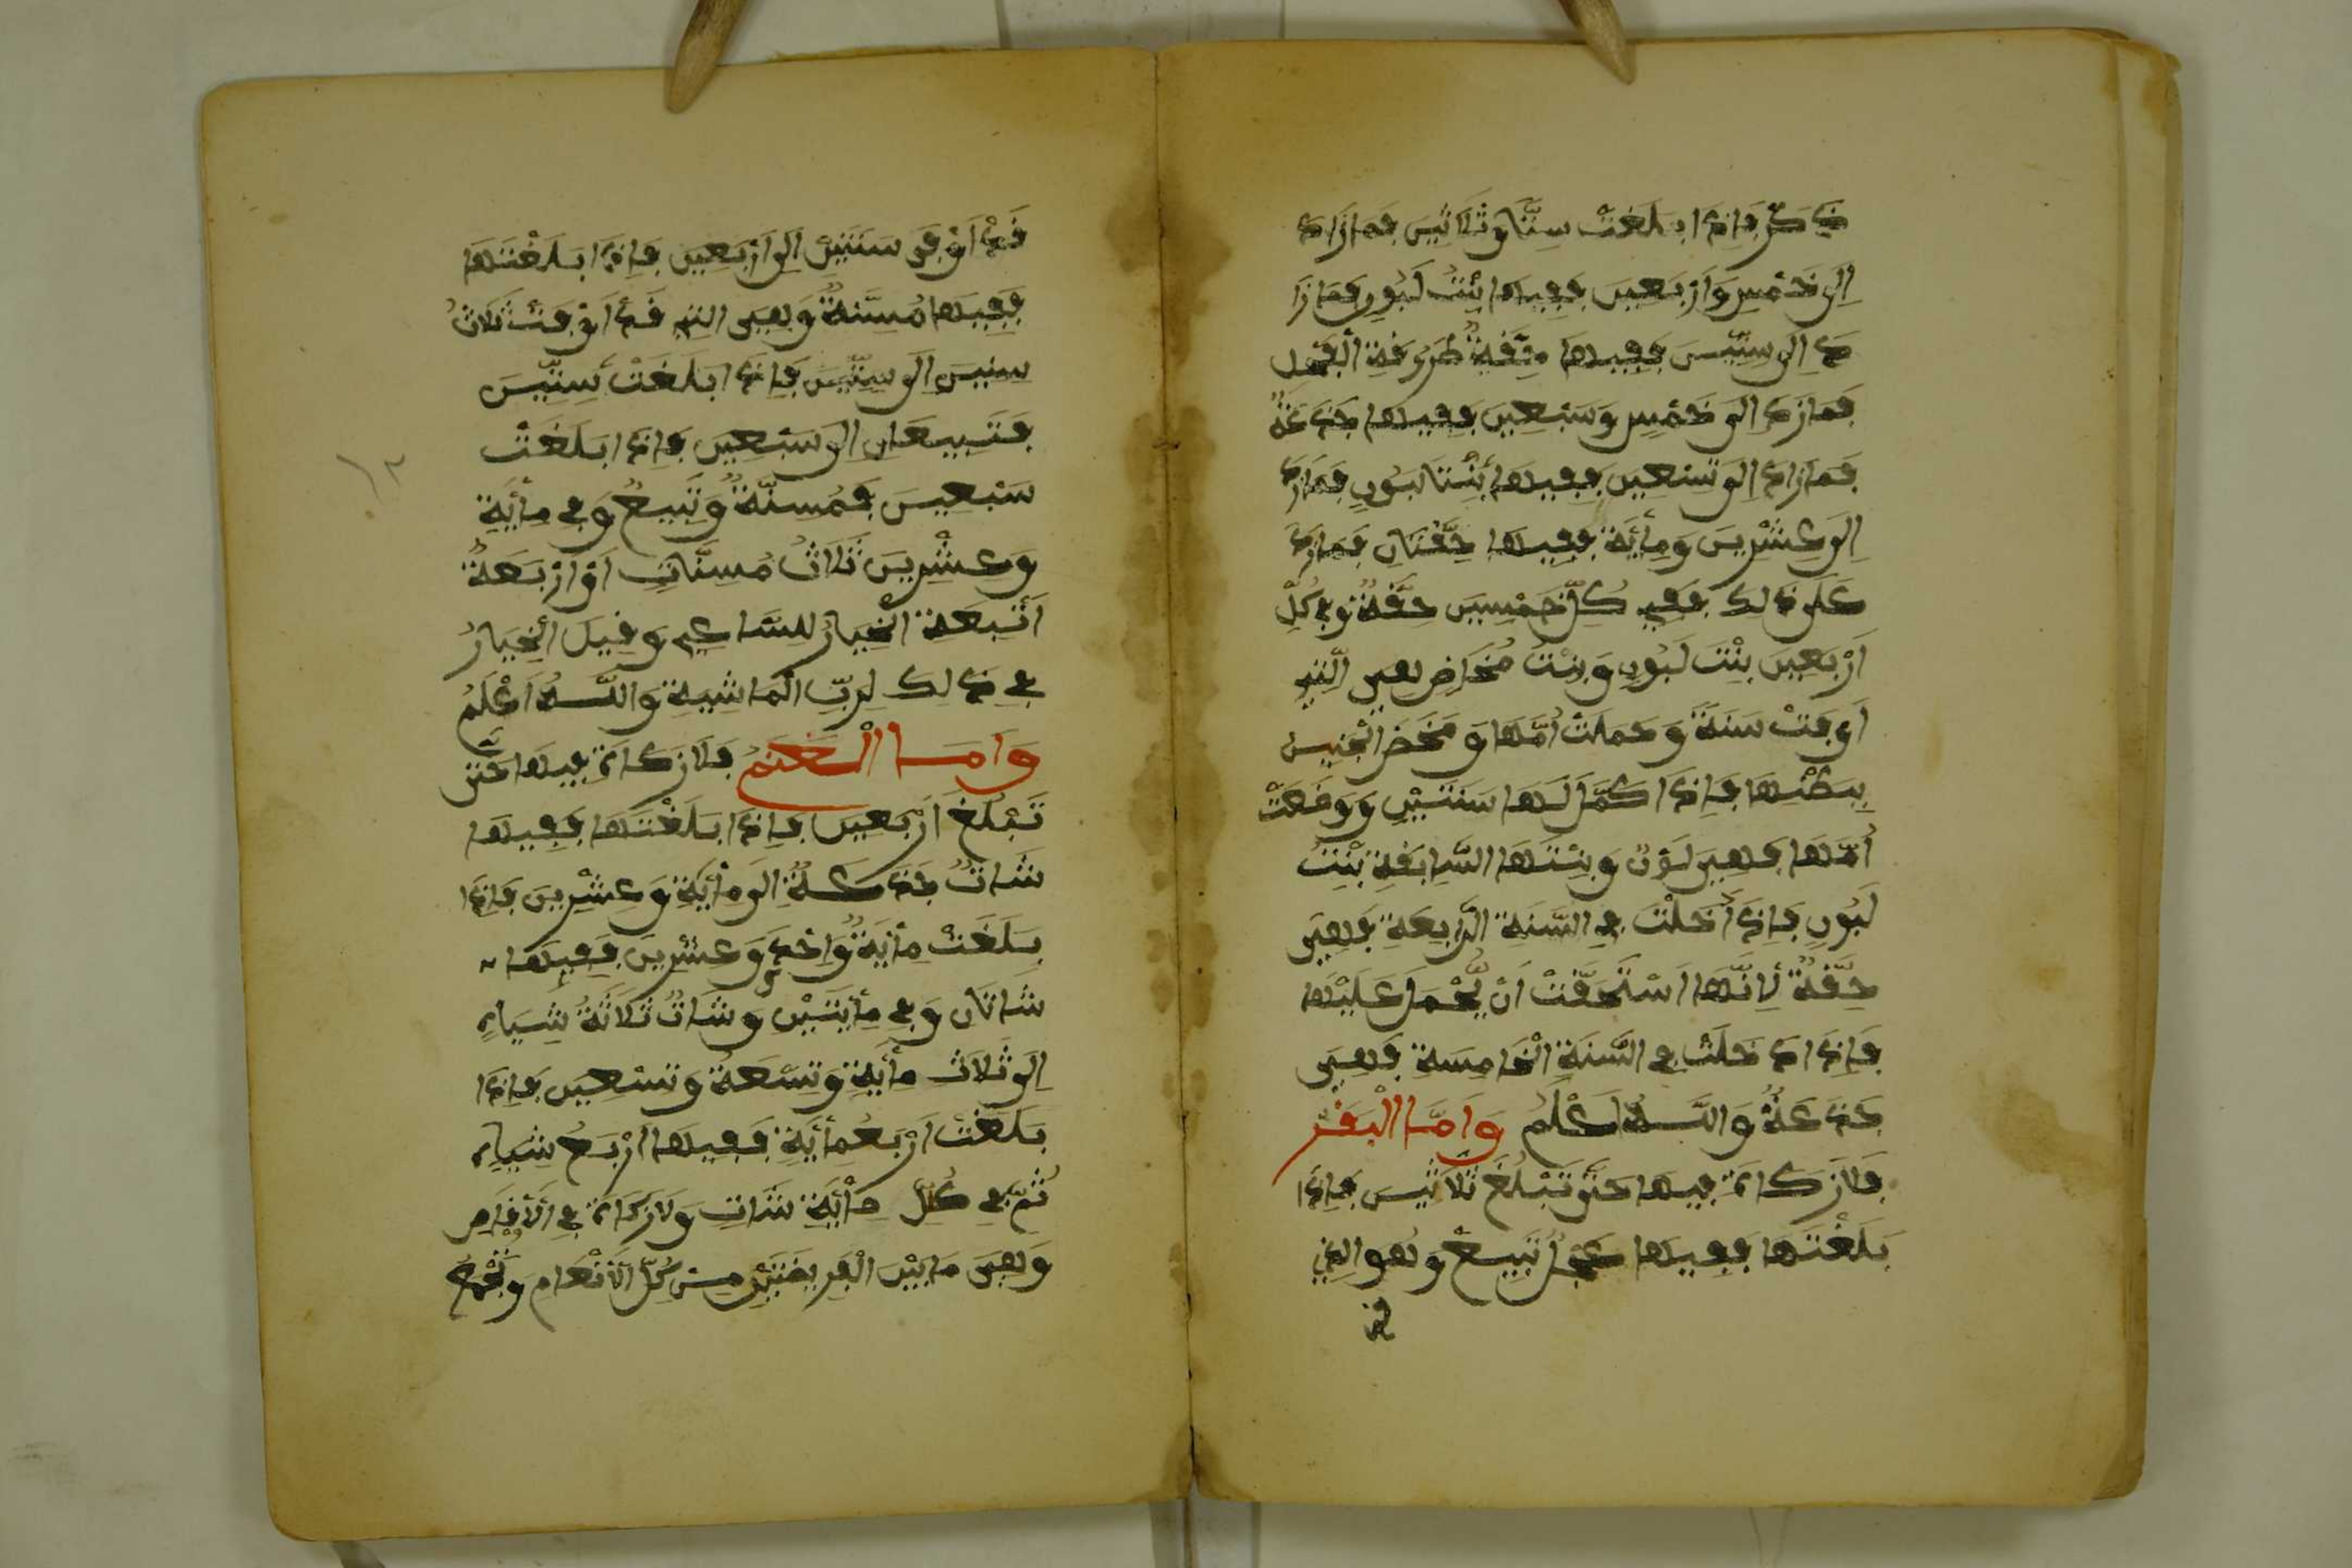 ذَكَرٌ فَإِذَا بَلَغَتْ سِتًّا وَثَلَاثِينَ فَمَا زَادَ
إِلَى خَمْسٍ وَأَرْبَعِينَ فَفِيهَا بِنْتُ لَبُونٍ فَمَا زَا
دَ إِلَى سِتِّينَ فَفِيهَا حِقَّةٌ طَرُوقَةُ الْفَحْلِ
فَمَا زَادَ إِلَى خَمْسٍ وَسَبْعِينَ فَفِيهَا جَذَعَةٌ
فَمَا زَادَ إِلَى تِسْعِينَ فَفِيهَا بِنْتَا لَبُونٍ فَمَا زَادَ
إِلَى عِشْرِينَ وَمِائَةٍ فَفِيهَا حِقَّتَانِ فَمَا زَادَ
عَلَى ذَلِكَ فَفِي كُلِّ خَمْسِينَ حِقَّةٌ وَفِي كُلِّ
أَرْبَعِينَ بِنْتَ لَبُونٍ وَبِنْتُ مُخَاضٍ هِيَ الَّتِي
أَوْفَتْ سَنَةً وَحَمَلَتْ أُمُّهَا وَمَخَضَ الْجَنِينُ
بِبَطْنِهَا فَإِذَا كَمَّلَ لَهَا سَنَتَيْنِ وَوَضَعَتْ
أُمُّهَا فَهِيَ لَبُونٌ وَبِنْتُهَا السَّابِقَةِ بِنْتُ
لَبُونٍ فَإِذَا دَخَلَتْ فِي السَّنَةِ الرَّابِعَةِ فَهِيَ
حِقَّةٌ لِأَنَّهَا اسْتَحَقَّتْ أَنْ يُحْمَلَ عَلَيْهَا
فَإِذَا دَخَلَتْ فِي السَّنَةِ الْخَامِسَةِ فَهِيَ
جَذَعَةٌ وَاللَّهُ أَعْلَمُ وَأَمَّا الْبَقَرُ
فَلَا زَكَاةَ فِيهَا حَتَّى تَبْلُغَ ثَلَاثِينَ فَإِذَا
بَلَغَتْهَا فَفِيهَا عِجْلٌ تَبِيعٌ وَهُوَ الَّذِي
قد
قَدْ أَوْفَى سَنَتَيْنِ إِلَى أَرْبَعِينَ فَإِذَا بَلَغَتْهَا
فَفِيهَا مُسِنَّةٌ وَهِيَ الَّتِي قَدْ أَوْفَتْ ثَلَاثُ
سِنِينَ إِلَى سِتِّينَ فَإِذَا بَلَغَتْ سِتِّينَ
فَتَبِيعَانِ إِلَى سَبْعِينَ فَإِذَا بَلَغَتْ
سَبْعِينَ فَمُسِنَّةٌ وَتَبِيعٌ وَفِي مِائَةِ
وَعِشْرِينَ ثَلَاثُ مُسِنَّاتٍ أَوْ أَرْبَعَةُ
أَتْبِعَةٍ الْخِيَارُ لِلسَّاعِي وَقِيلَ الْخِيَارُ
فِي ذَلِكَ لِرَبِّ الْمَاشِيَةِ وَاللَّهُ أَعْلَمُ
وَأَمَّا الْغَنَمُ فَلَا زَكَاةَ فِيهَا حَتَّى
تَبْلُغَ أَرْبَعِينَ فَإِذَا بَلَغَتْهَا فَفِيهَا
شَاتٌ جَذَعَةٌ إِلَى مِائَةٍ وَعِشْرِينَ فَإِذَا
بَلَغَتْ مِائَةٌ وَاحِدَ وَعِشْرِينَ فَفِيهَا
شَاتَانِ وَفِي مِائَتَيْنِ وَشَاتٌ ثَلَاثَةُ شِيَاهٍ
إِلَى ثَلَاثِ مِائَةٍ وَتِسْعَةٌ وَتِسْعِينَ فَإِذَا
بَلَغَتْ أَرْبَعُمِائَةٍ فَفِيهَا أَرْبَعُ شِيَاهٍ
ثُمَّ فِي كُلِّ مِائَةٍ شَاتٍ وَلَا زَكَاةَ فِي الْأَوْقَاصِ
وَهِيَ مَا بَيْنَ الْفَرِيضَتَيْنِ مِنْ كُلِّ الْأَنْعَامِ وَتُجْمَعُ
١٢